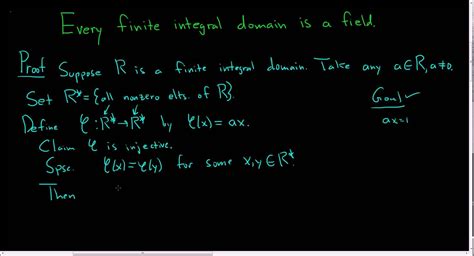 Every finite integral domain is a field.
Proof Suppose R is a finite integral domain. Take any a∈R, a≠0.
Set R*={all nonzero elts. of R}.
Goal ✓
ax=1
Define φ:R*→R* by φ(x)=ax.
Claim φ is injective.
Spse. φ(x)=φ(y) for some x,y∈R*.
Then